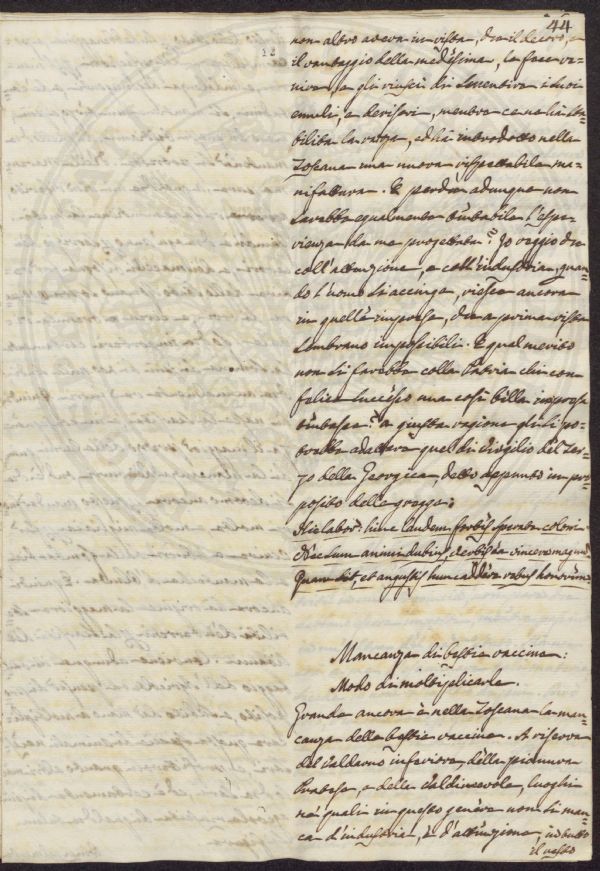 44
non altro aveva in vista, che il decoro, e
il vantaggio della medesima, le fece ve-
nire, e gli riuscì di smentire i suoi
emuli, e derisori, mentre ce ne ha sta-
bilita la razza, ed hà introdotto nella
Toscana una nuova rispettabile ma-
nifattura. E perchè adunque non
sarebbe egualmente tentabile l'espe-
rienza da me progettata? Io veggio che
coll'attenzione, e coll'industria, quan-
do l'uomo si accinge, riesce ancora
in quelle imprese, che a prima vista
sembrano impossibili. E qual merito
non si farebbe colla Patria chi con
felice successo una così bella impresa
tentasse? a giusta ragione gli si po-
trebbe adattare quel di Virgilio del ter-
zo della Georgica, detto appunto in pro-
posito delle gregge:
Hic labor: hinc laudem fortes sperate coloni.
Nec sum animi dubius, verbis ea vincere magnum
Quam sit, et angustis hunc addere rebus honorem.
Mancanza di bestie vaccine:
Modo di moltiplicarle.
Grande ancora è nella Toscana la man-
canza delle bestie vaccine. A riserva
del Valdarno inferiore, della pianura
Pratese, e della Valdinievole, luoghi
ne' quali in questo genere non si man-
ca d'industria, e d'attenzione, in tutto
il resto